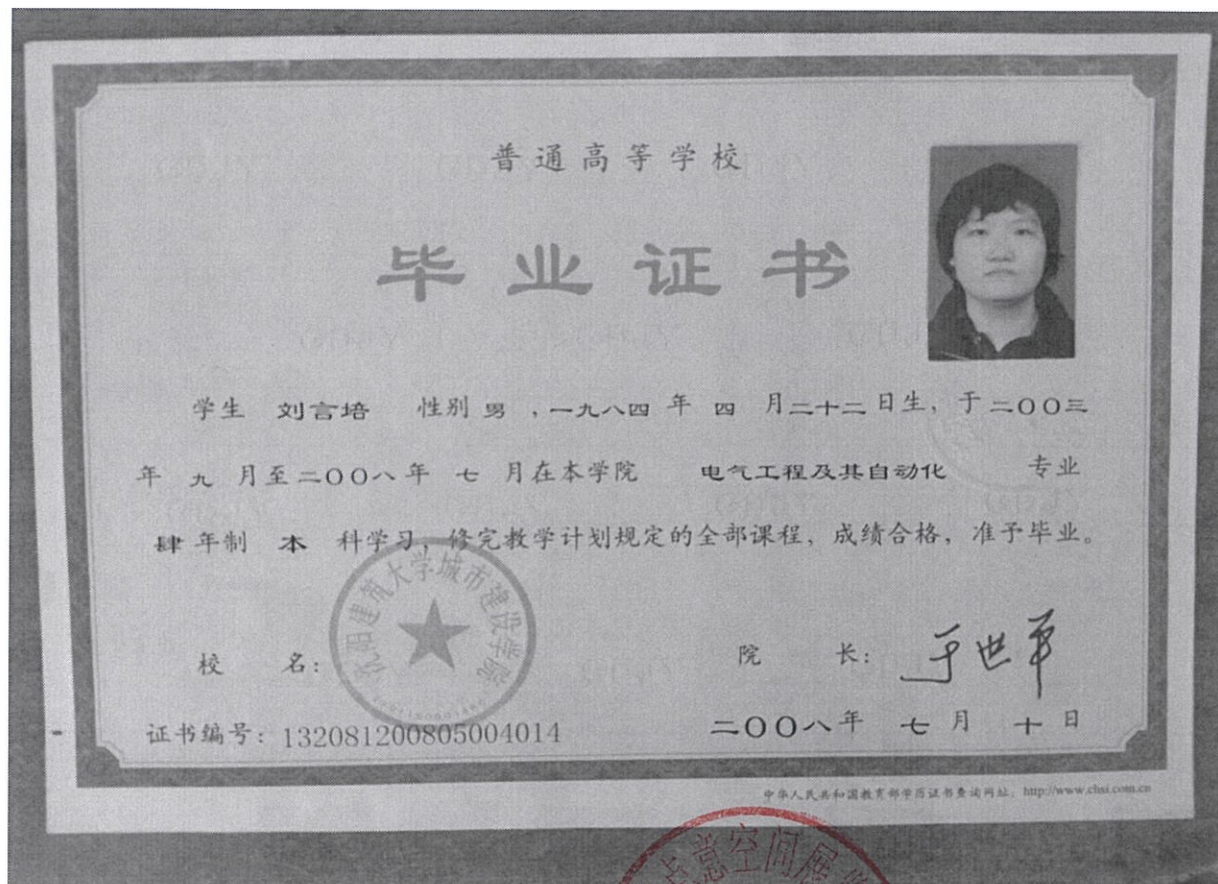 普通高等学校
毕业证书
学生 刘言培 性别 男 ,一九八四 年 四 月二十二 日生, 于 二OO三
年 九 月至 二OO八 年 七 月在本学院 电气工程及其自动化 专业
肆 年制 本 科学习, 修完教学计划规定的全部课程, 成绩合格, 准予毕业。
沈阳建筑大学城市建设学院
校 名:
院 长: 于世军
证书编号: 132081200805004014
二OO八 年 七 月 十 日
中华人民共和国教育部学历证书查询网址: http://www.chsi.com.cn
意空间展